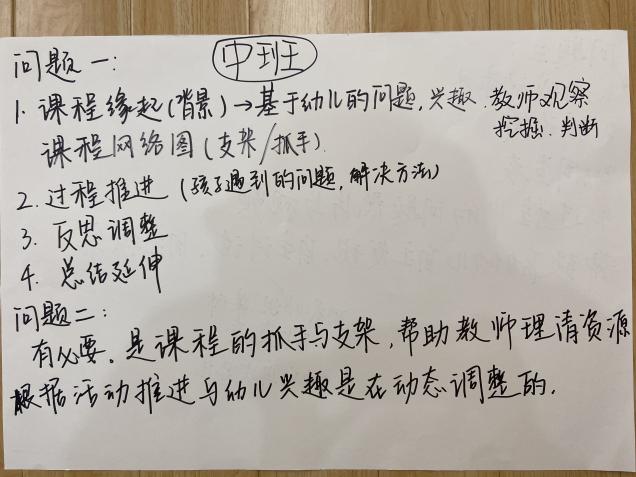 中班
问题一：
1. 课程缘起(背景)→基于幼儿的问题,兴趣.教师观察
挖掘.判断
课程网络图(支架/抓手).
2. 过程推进 (孩子遇到的问题,解决方法)
3. 反思调整
4. 总结延伸
问题二：
有必要。是课程的抓手与支架,帮助教师理清资源
根据活动推进与幼儿兴趣是在动态调整的.